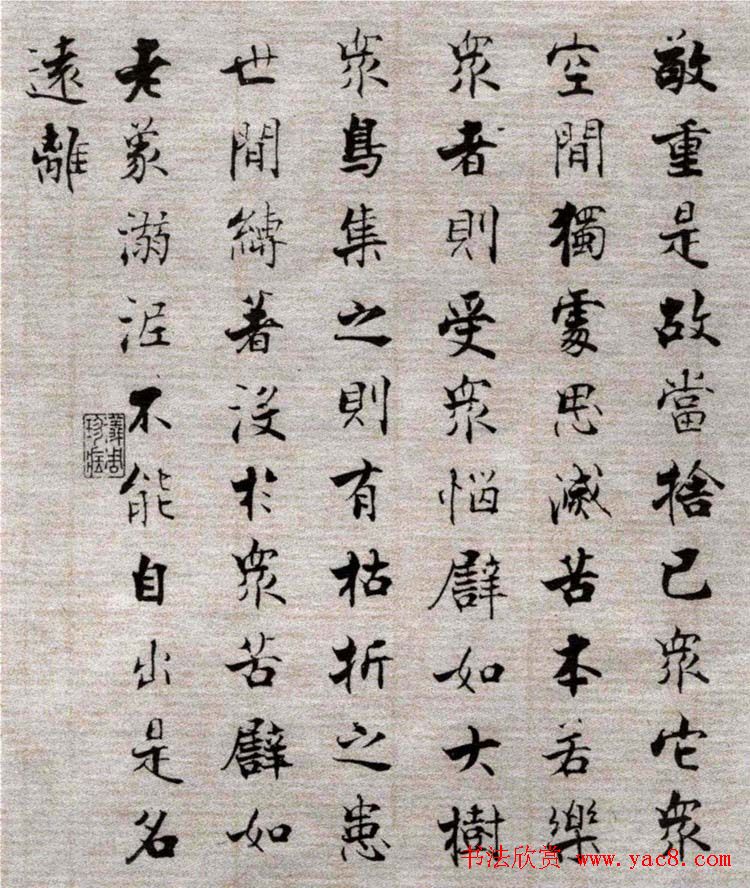 敬重是故當捨己衆它衆
空間獨處思滅苦本若樂
衆者則受衆惱譬如大樹
衆鳥集之則有枯折之患
世間縛著没於衆苦譬如
老象溺泥不能自出是名
遠離
书法欣赏 www.yac8.com